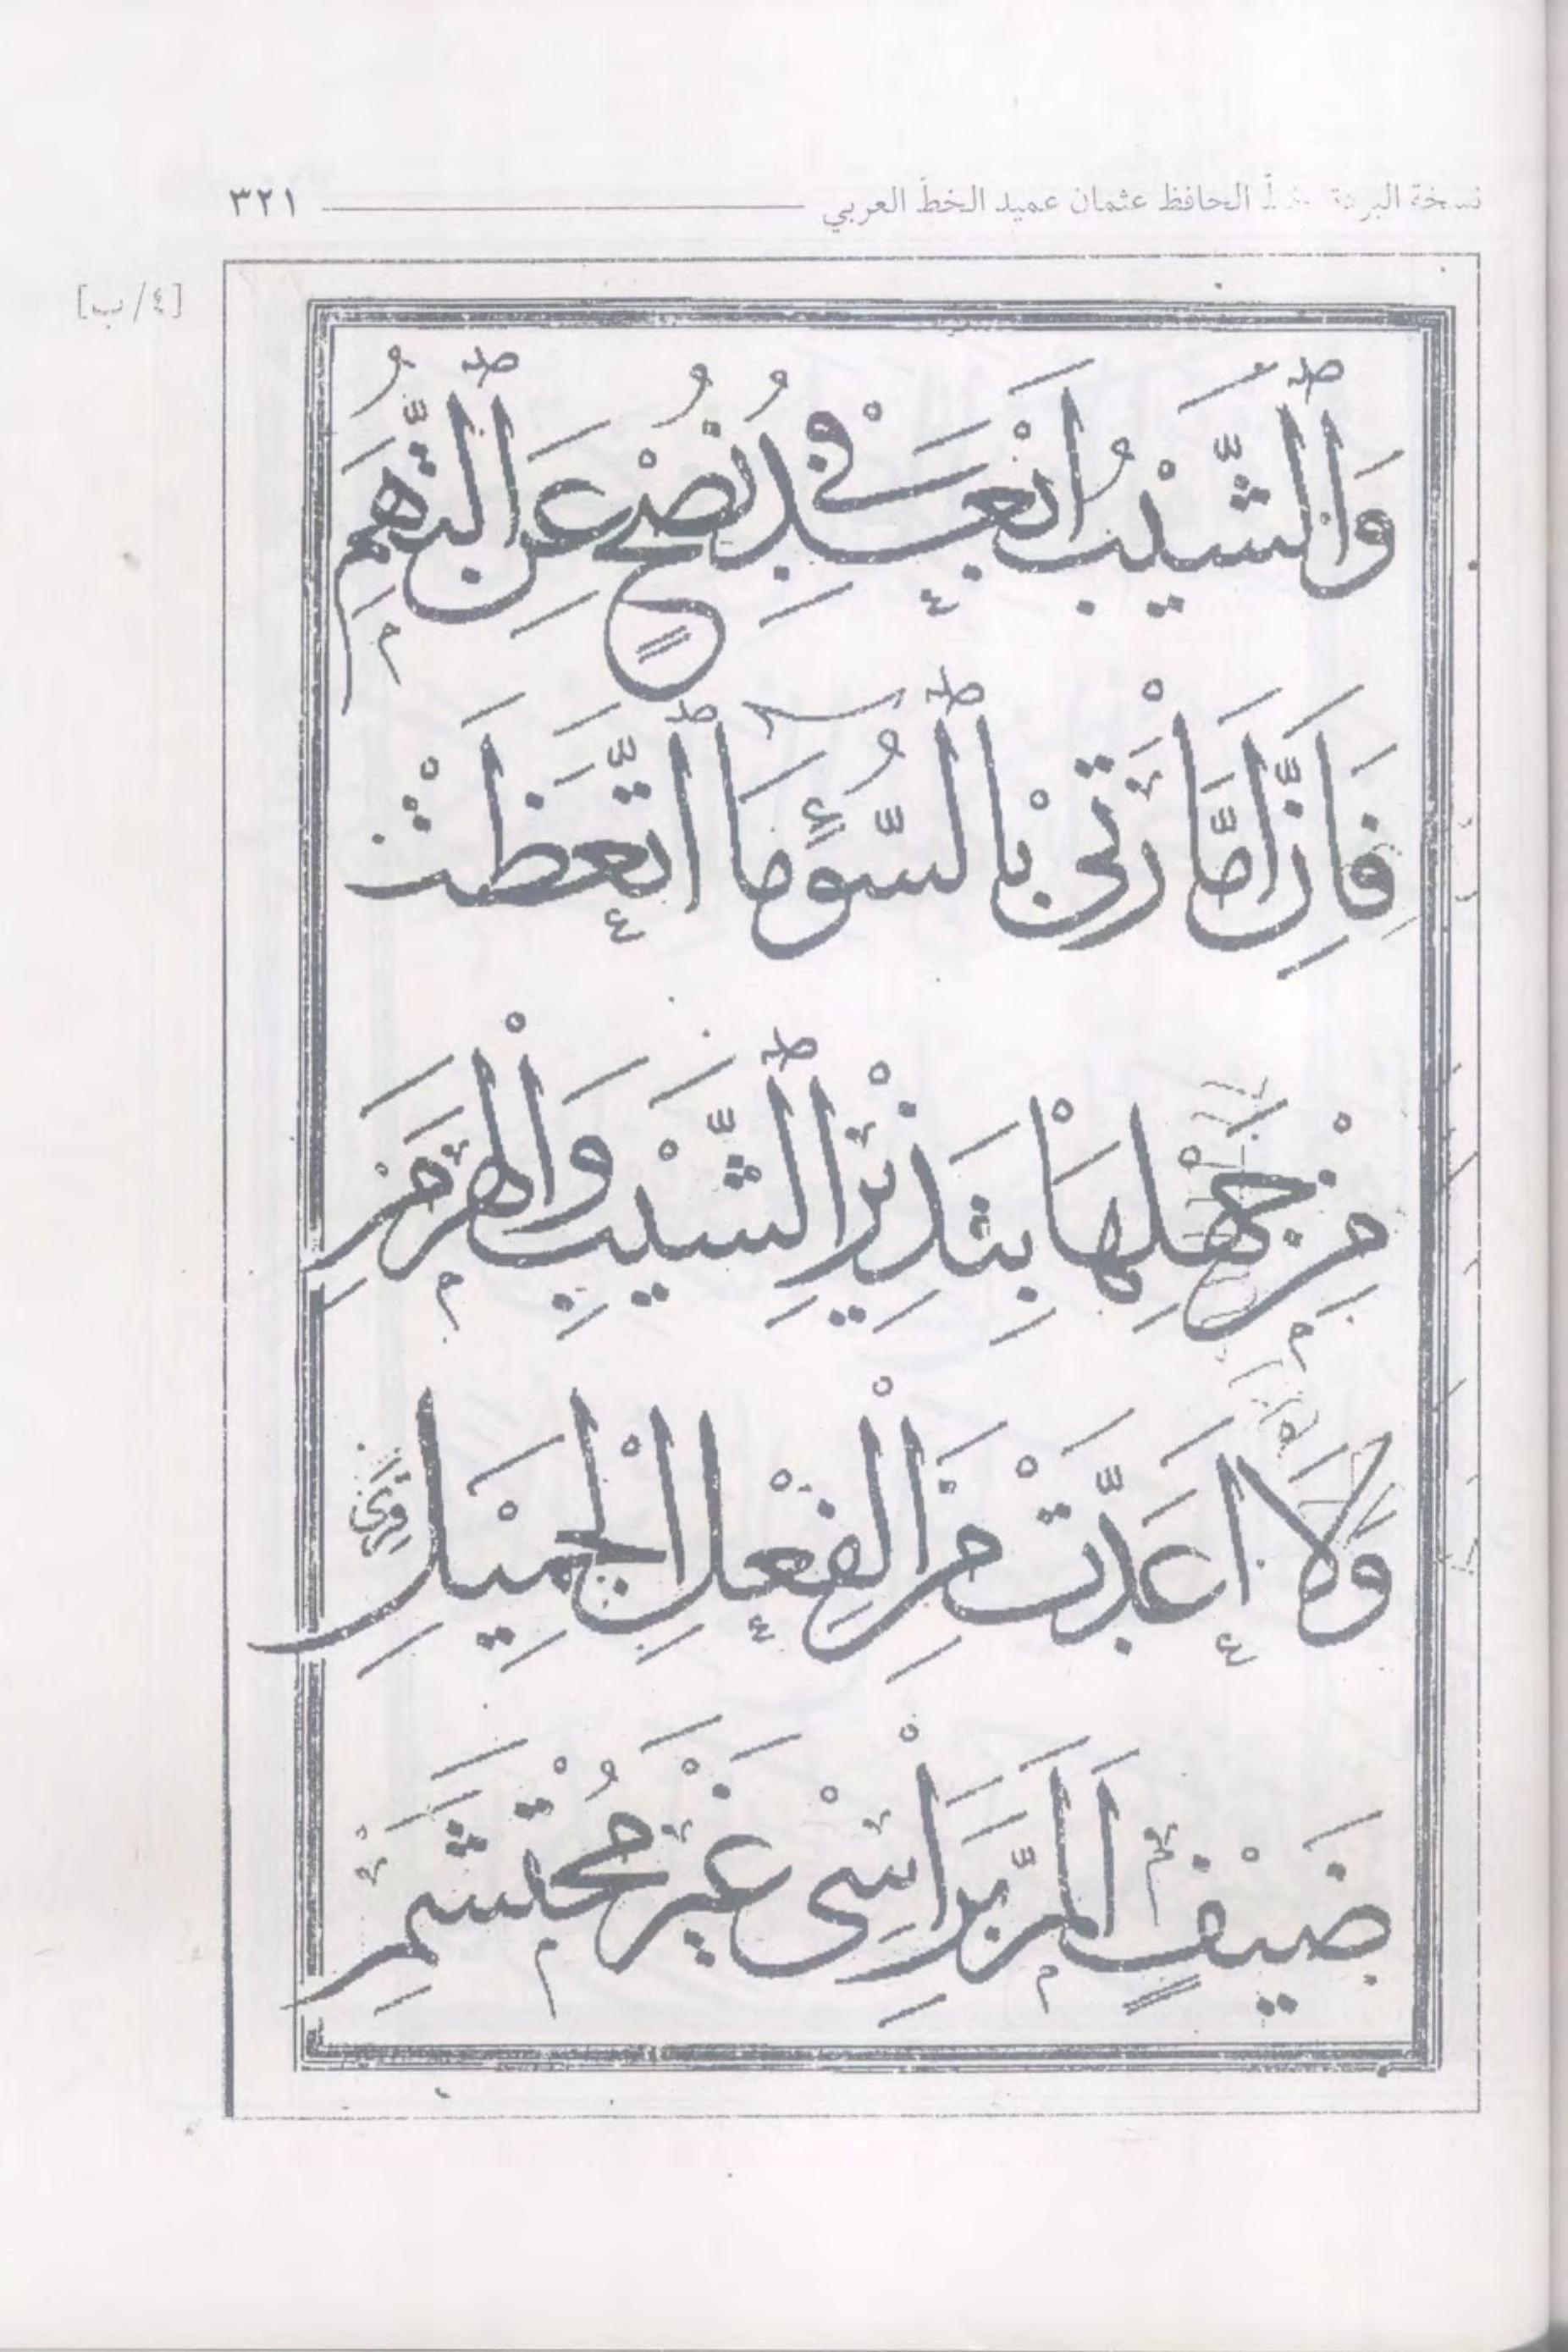 نسخة البردة بخطّ الحافظ عثمان عميد الخطّ العربي ٣٢١
[٤/ب]
وَالشَّيْبُ اَبْعَدُ فِي نُصْحٍ عَنِ التُّهَمِ
فَاِنَّ اَمَّارَتِي بِالسُّوءِ مَا اتَّعَظَتْ
مِنْ جَهْلِهَا بِنَذِيْرِ الشَّيْبِ وَالْهَرَمِ
وَلَا اَعَدَّتْ مِنَ الْفِعْلِ الْجَمِيْلِ قِرٰى
ضَيْفٍ اَلَمَّ بِرَاْسِي غَيْرَ مُحْتَشَمِ